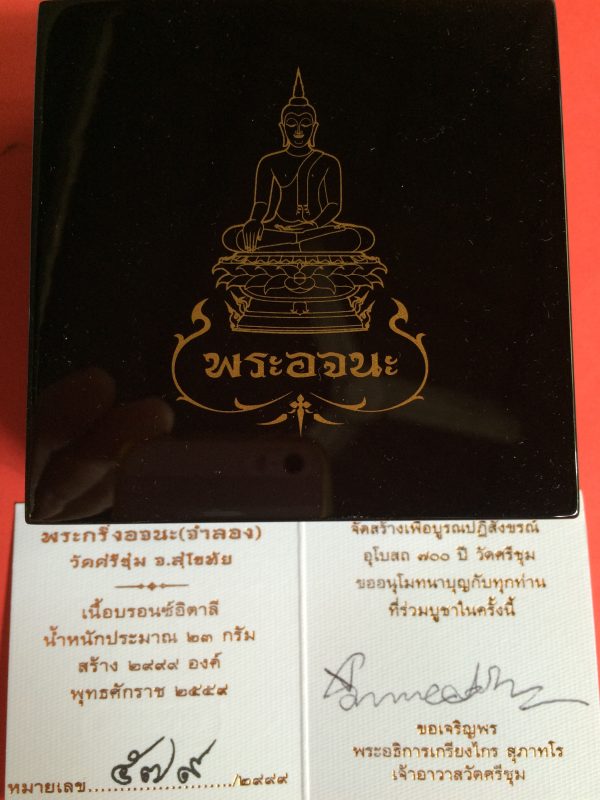 พระอจนะ
พระกริ่งอจนะ(จำลอง)
วัดศรีชุม จ.สุโขทัย
เนื้อบรอนซ์อิตาลี
น้ำหนักประมาณ ๒๓ กรัม
สร้าง ๒๙๙๙ องค์
พุทธศักราช ๒๕๕๙
หมายเลข ๕๗๙ /๒๙๙๙
จัดสร้างเพื่อบูรณปฏิสังขรณ์
อุโบสถ ๗๐๐ ปี วัดศรีชุม
ขออนุโมทนาบุญกับทุกท่าน
ที่ร่วมบูชาในครั้งนี้
ขอเจริญพร
พระอธิการเกรียงไกร สุภาทโร
เจ้าอาวาสวัดศรีชุม